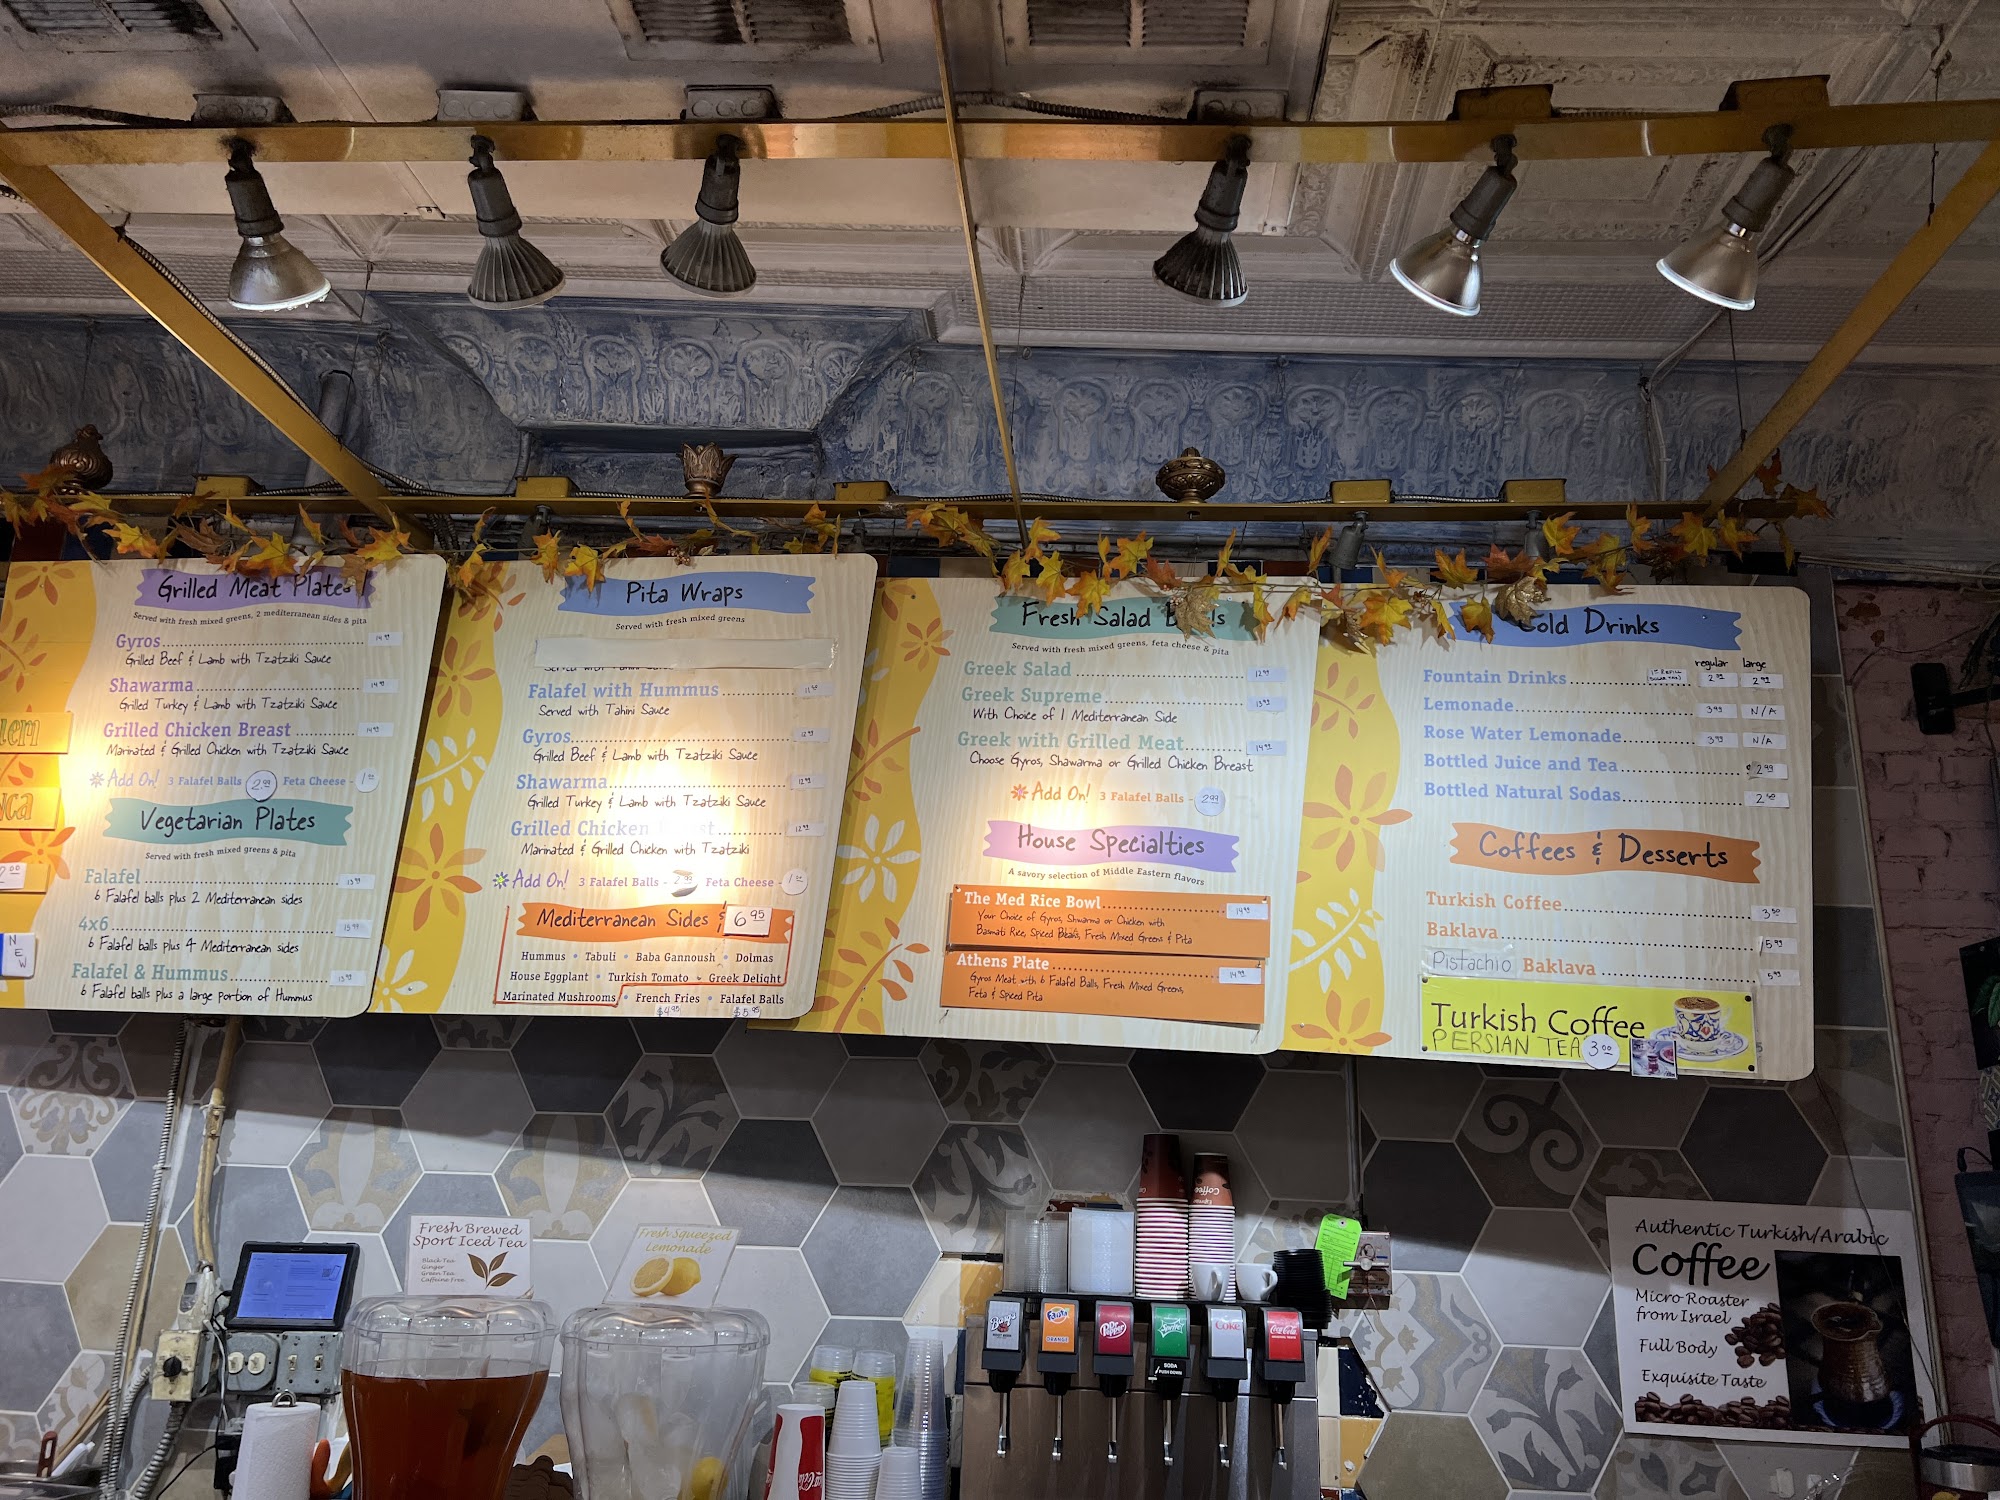 Grilled Meat Plates
Served with fresh mixed greens, 2 mediterranean sides & pita
Gyros 14.99
Grilled Beef & Lamb with Tzatziki Sauce
Shawarma 14.99
Grilled Turkey & Lamb with Tzatziki Sauce
Grilled Chicken Breast 14.99
Marinated & Grilled Chicken with Tzatziki Sauce
Add On! 3 Falafel Balls 2.99 Feta Cheese -
Vegetarian Plates
Served with fresh mixed greens & pita
Falafel 13.99
6 Falafel balls plus 2 Mediterranean sides
4x6
6 Falafel balls plus 4 Mediterranean sides
Falafel & Hummus 13.99
6 Falafel balls plus a large portion of Hummus
NEW
Pita Wraps
Served with fresh mixed greens
Falafel with Hummus
Served with Tahini Sauce
Gyros 12.99
Grilled Beef & Lamb with Tzatziki Sauce
Shawarma 12.99
Grilled Turkey & Lamb with Tzatziki Sauce
Grilled Chicken Breast 12.99
Marinated & Grilled Chicken with Tzatziki
Add On! 3 Falafel Balls - 2.99 Feta Cheese -
Mediterranean Sides & 6.95
Hummus • Tabuli • Baba Gannoush • Dolmas
House Eggplant • Turkish Tomato • Greek Delight
Marinated Mushrooms • French Fries • Falafel Balls
$4.95 $5.95
Fresh Salad
Served with fresh mixed greens, feta cheese & pita
Greek Salad 12.99
Greek Supreme 13.99
With Choice of 1 Mediterranean Side
Greek with Grilled Meat 14.99
Choose Gyros, Shawarma or Grilled Chicken Breast
Add On! 3 Falafel Balls - 2.99
House Specialties
A savory selection of Middle Eastern flavors
The Med Rice Bowl 14.99
Your Choice of Gyros, Shwarma or Chicken with
Basmati Rice, Spiced Beans, Fresh Mixed Greens & Pita
Athens Plate 14.99
Gyros Meat with 6 Falafel Balls, Fresh Mixed Greens,
Feta & Spiced Pita
Cold Drinks
regular large
Fountain Drinks 2.99
Lemonade 3.99 N/A
Rose Water Lemonade 3.99 N/A
Bottled Juice and Tea 2.99
Bottled Natural Sodas
Coffees & Desserts
Turkish Coffee 3.50
Baklava 5.99
Pistachio Baklava 5.99
Turkish Coffee
PERSIAN TEA 3.00
Fresh Brewed
Sport Iced Tea
Black Tea
Ginger
Green Tea
Caffeine Free
Fresh Squeezed
Lemonade
Coffee
Barq's
Fanta
ORANGE
Dr Pepper
Sprite
Coke
Coca-Cola
SODA
PUSH DOWN
Coca-Cola
Authentic Turkish/Arabic
Coffee
Micro Roaster
from Israel
Full Body
Exquisite Taste